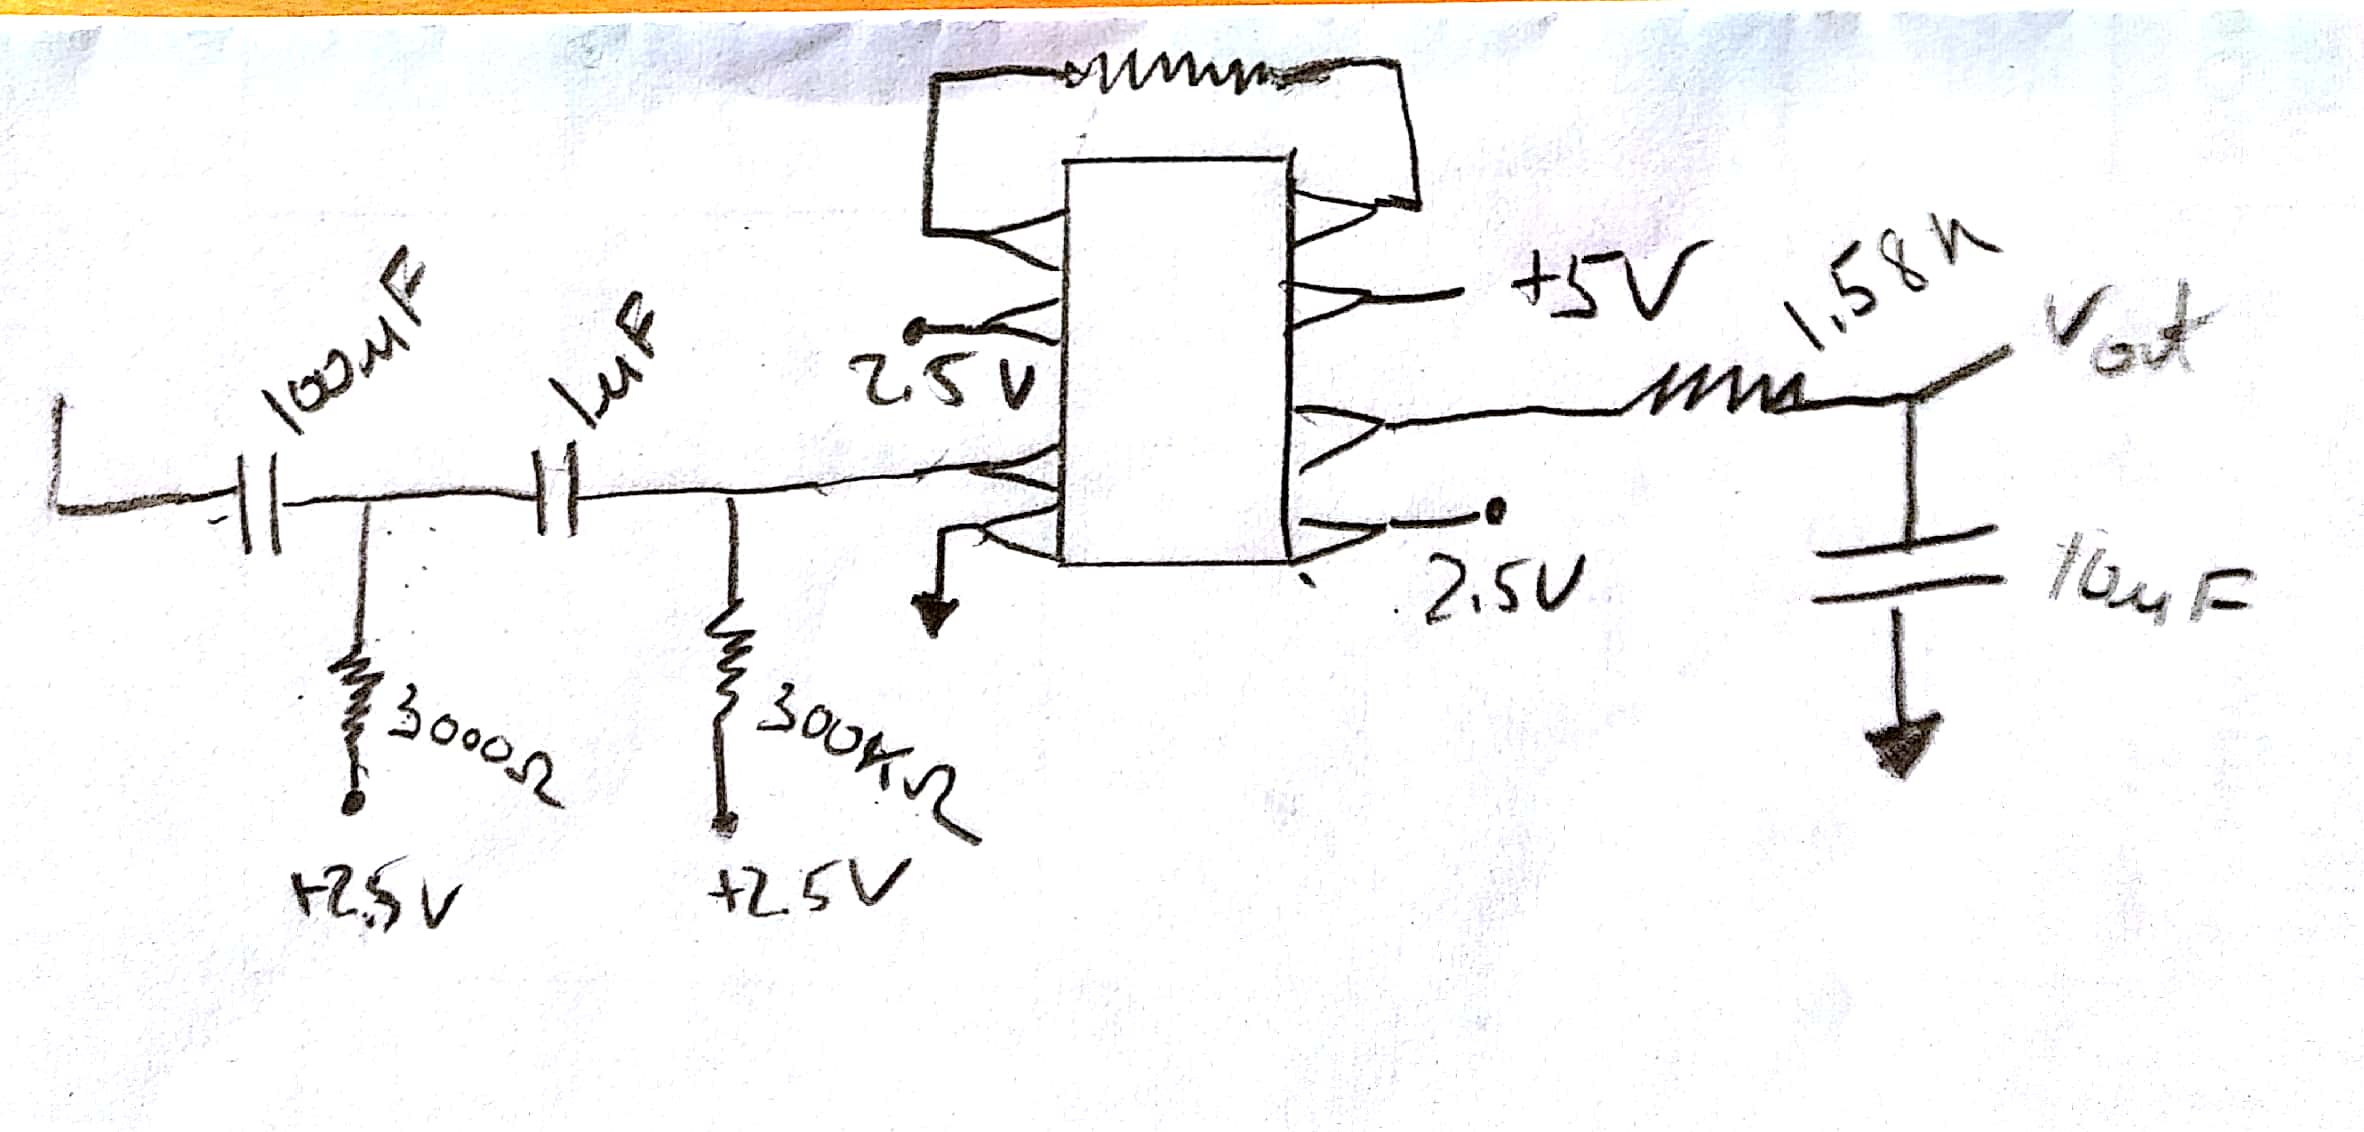 100µF
1µF
2.5V
+5V
1.58k
Vout
2.5V
10µF
3000Ω
300KΩ
+2.5V
+2.5V